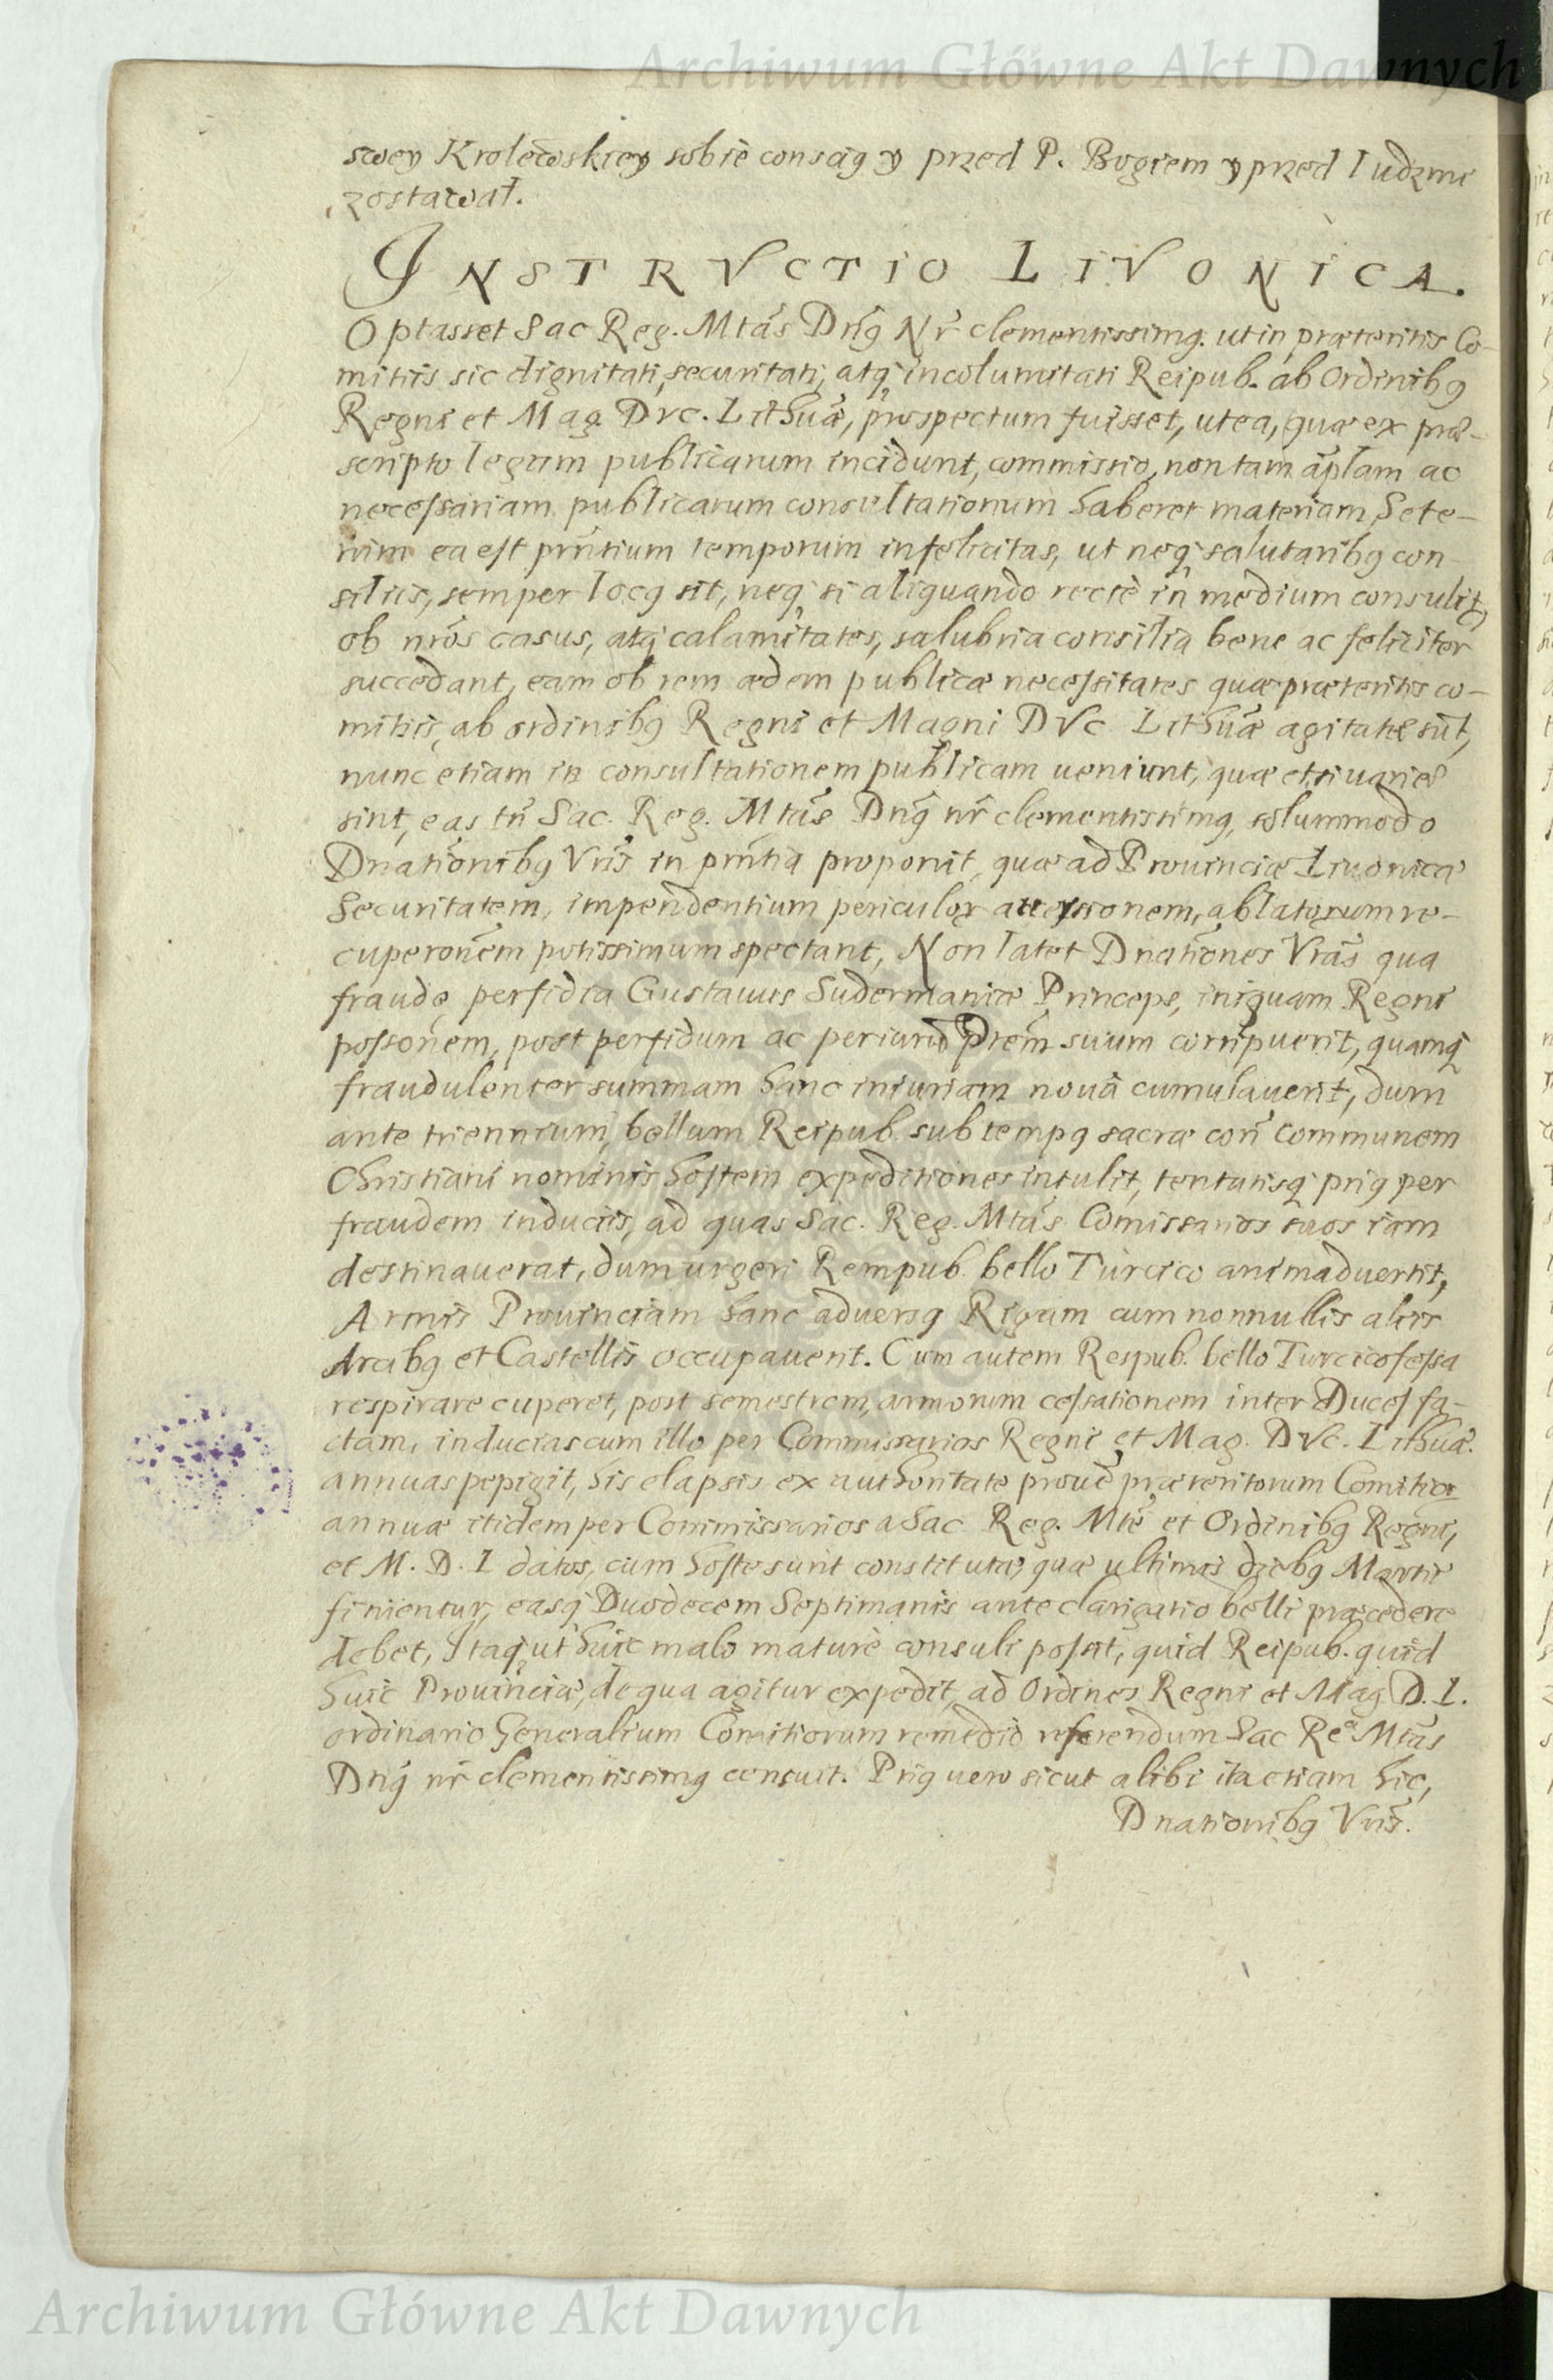 Archiwum Główne Akt Dawnych
swey Krolewskiey sobie consciꝯ y przed P. Bogiem y przed ludzmi
zostawał.
INSTRVCTIO LIVONICA.
Optasset Sac Reg. Mtãs Dñꝯ Nr̃ clementissimꝯ. ut in præteritis Co-
mitiis sic dignitati, securitati, atq́ incolumitati Reipub. ab Ordinibꝯ
Regni et Mag. Dvc. Lithuãæ, prospectum fuisset, ut ea, quæ ex præ-
scripto legum publicarum incidunt, commissio, non tam ãplam ac
necessariam publicarum consultationum haberet materiam, Sete-
nim ea est prñtium temporum infelicitas, ut neq́ salutaribꝯ con-
siliis, semper locꝯ sit, neq́ si aliquando rectè in medium consulit,
ob nrõs casus, atq́ calamitates, salubria consilia bene ac feliciter
succedant, eam ob rem ædem publicæ necessitates quæ præteritis co-
mitiis, ab ordinibꝯ Regni et Magni DVc Lithuãæ agitatæ sũt,
nunc etiam in consultationem publicam ueniunt, quæ etsi uariæ
sint, eas tñ Sac. Reg. Mtãs Dñꝯ nr̃ clementissimꝯ, solummodo
Dnationibꝯ Vrĩs in prñtia proponit, quæ ad Prouinciæ Liuonicæ
Securitatem, impendentium periculoꝝ auersionem, ablatorum re-
cuperonẽm potissimum spectant, Non latet Dnatiões Vrãs qua
fraude, perfidia Gustauus Sudermaniæ Princeps, iniquam Regni
possonẽm, post perfidum ac periurũ Prẽm suum corripuerit, quamq́
fraudulenter summam hanc iniuriam nouâ cumulauerit, dum
ante triennium, bellum Reipub. sub tempꝯ sacræ coñ communem
Christiani nominis hostem expeditiones intulit, tentatisq́ priꝯ per
fraudem induciis, ad quas Sac. Reg. Mtãs Comissarios suos iam
destinauerat, dum urgeri Rempub. bello Turcico animaduertit,
Armis Prouinciam hanc aduersꝯ Rigam cum nonnullis aliis
Arcibꝯ et Castellis occupauerit. Cum autem Respub. bello Turcico fessa
respirare cuperet, post semestrem, armorum cessationem inter Duces fa-
ctam, inducias cum illo per Commissarios Regni et Mag. DVc. Lithuãæ.
annuas pepigit, his elapsis ex authoritate prouẽ præteritorum Comitioꝝ
annuæ itidem per Commissarios a Sac Reg. Mtẽ et Ordinibꝯ Regni,
et M. D. L datos, cum hoste sunt constitutæ, quæ ultimis diebꝯ Martii
finientur, easq́ Duodecem Septimanis ante clarigatio belli præcedere
debet, Itaq́ ut huic malo maturè consuli possit, quid Reipub. quid
huic Prouinciæ, de qua agitur expedit, ad Ordines Regni et Mag. D. L.
ordinario Generalium Comitiorum remedio referendum Sac Reᵃ Mtãs
Dñꝯ nr̃ clementissimꝯ censuit. Priꝯ uero sicut alibi ita etiam hic,
Dnationibꝯ Vrĩs.
Archiwum Główne Akt Dawnych